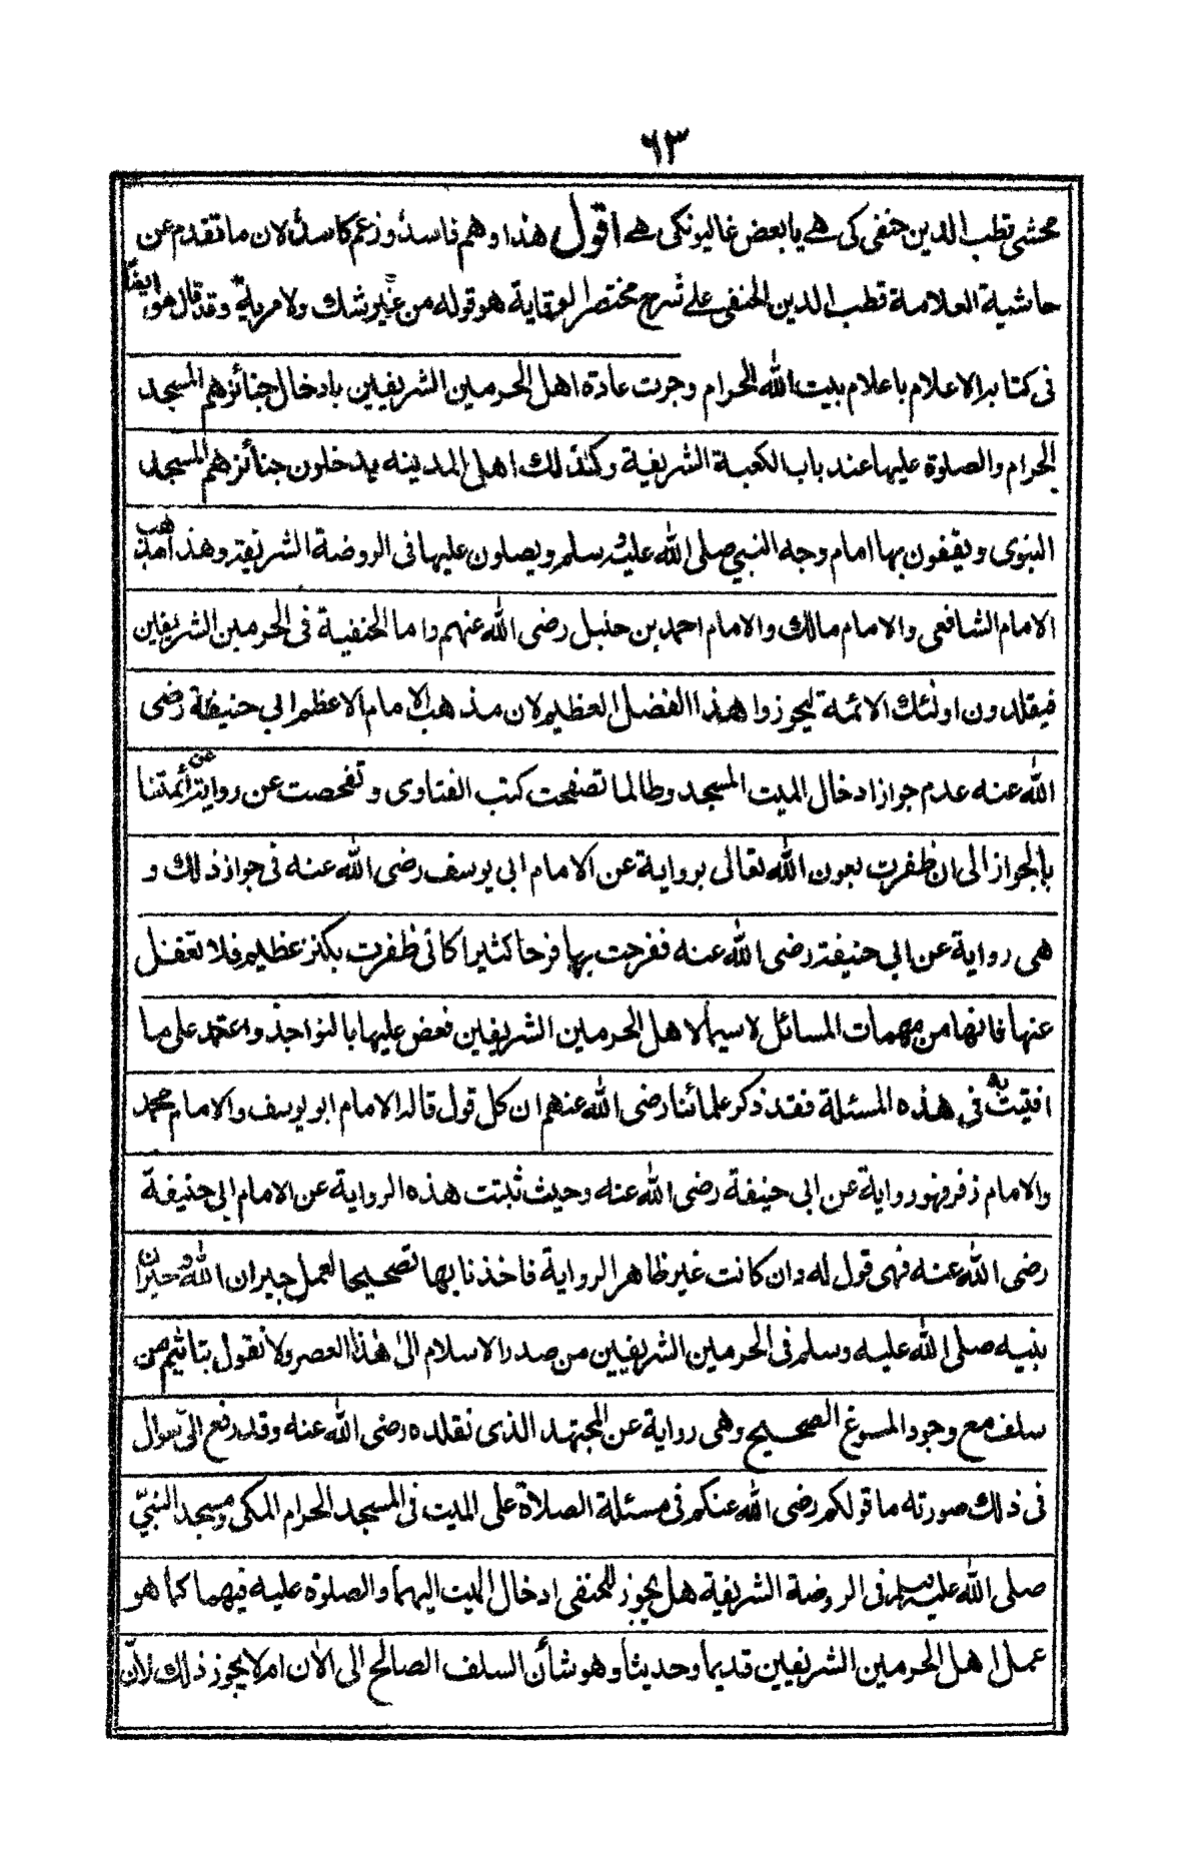 ٦٣
محشی قطب الدین حنفی کی ہے یا بعض غالیونکی ہے اقول هذا وهم فاسد وزعم كاسد لان ما تقدم عن
حاشية العلامة قطب الدين الحنفي على شرح مختصر الوقاية هو قوله من غير شك ولا مرية وقد قال هو ايضا
فى كتابه الاعلام باعلام بيت الله الحرام وجرت عادة اهل الحرمين الشريفين بادخال جنائزهم المسجد
الحرام والصلوة عليها عند باب الكعبة الشريفة وكذلك اهل المدينه يدخلون جنائزهم المسجد
النبوى ويقفون بها امام وجه النبي صلى الله عليه وسلم ويصلون عليها فى الروضة الشريفة وهذا مذهب
الامام الشافعى والامام مالك والامام احمد بن حنبل رضى الله عنهم واما الحنفية فى الحرمين الشريفين
فيقلدون اولئك الائمة ليحوزوا هذا الفضل العظيم لان مذهب الامام الاعظم ابي حنيفة رضى
الله عنه عدم جواز ادخال الميت المسجد وطالما تصفحت كتب الفتاوى وتفحصت عن رواية عن أئمتنا
بالجواز الى ان ظفرت بعون الله تعالى برواية عن الامام ابى يوسف رضى الله عنه فى جواز ذلك و
هى رواية عن ابي حنيفة رضى الله عنه ففرحت بها فرحا كثيرا كانى ظفرت بكنز عظيم فلا تغفل
عنها فانها من مهمات المسائل لاسيما لاهل الحرمين الشريفين فعض عليها بالنواجذ واعتمد على ما
افتيت به فى هذه المسئلة فقد ذكر علمائنا رضى الله عنهم ان كل قول قاله الامام ابو يوسف والامام محمد
والامام زفر فهو رواية عن ابى حنيفة رضى الله عنه وحيث ثبتت هذه الرواية عن الامام ابي حنيفة
رضى الله عنه فهى قول له وان كانت غير ظاهر الرواية فاخذنا بها تصحيحا لعمل جيران الله وجيران
نبيه صلى الله عليه وسلم فى الحرمين الشريفين من صدر الاسلام الى هذا العصر ولا نقول بتاثيم من
سلف مع وجود المسوغ الصحيح وهى رواية عن المجتهد الذى نقلده رضى الله عنه وقد رفع الىّ سوال
فى ذلك صورته ما قولكم رضى الله عنكم فى مسئلة الصلاة على الميت فى المسجد الحرام المكى ومسجد النبيّ
صلى الله عليه وسلم فى الروضة الشريفة هل يجوز للحنفى ادخال الميت اليهما والصلوة عليه فيهما كما هو
عمل اهل الحرمين الشريفين قديما وحديثا وهو شأن السلف الصالح الى الآن ام لا يجوز ذلك لانّ